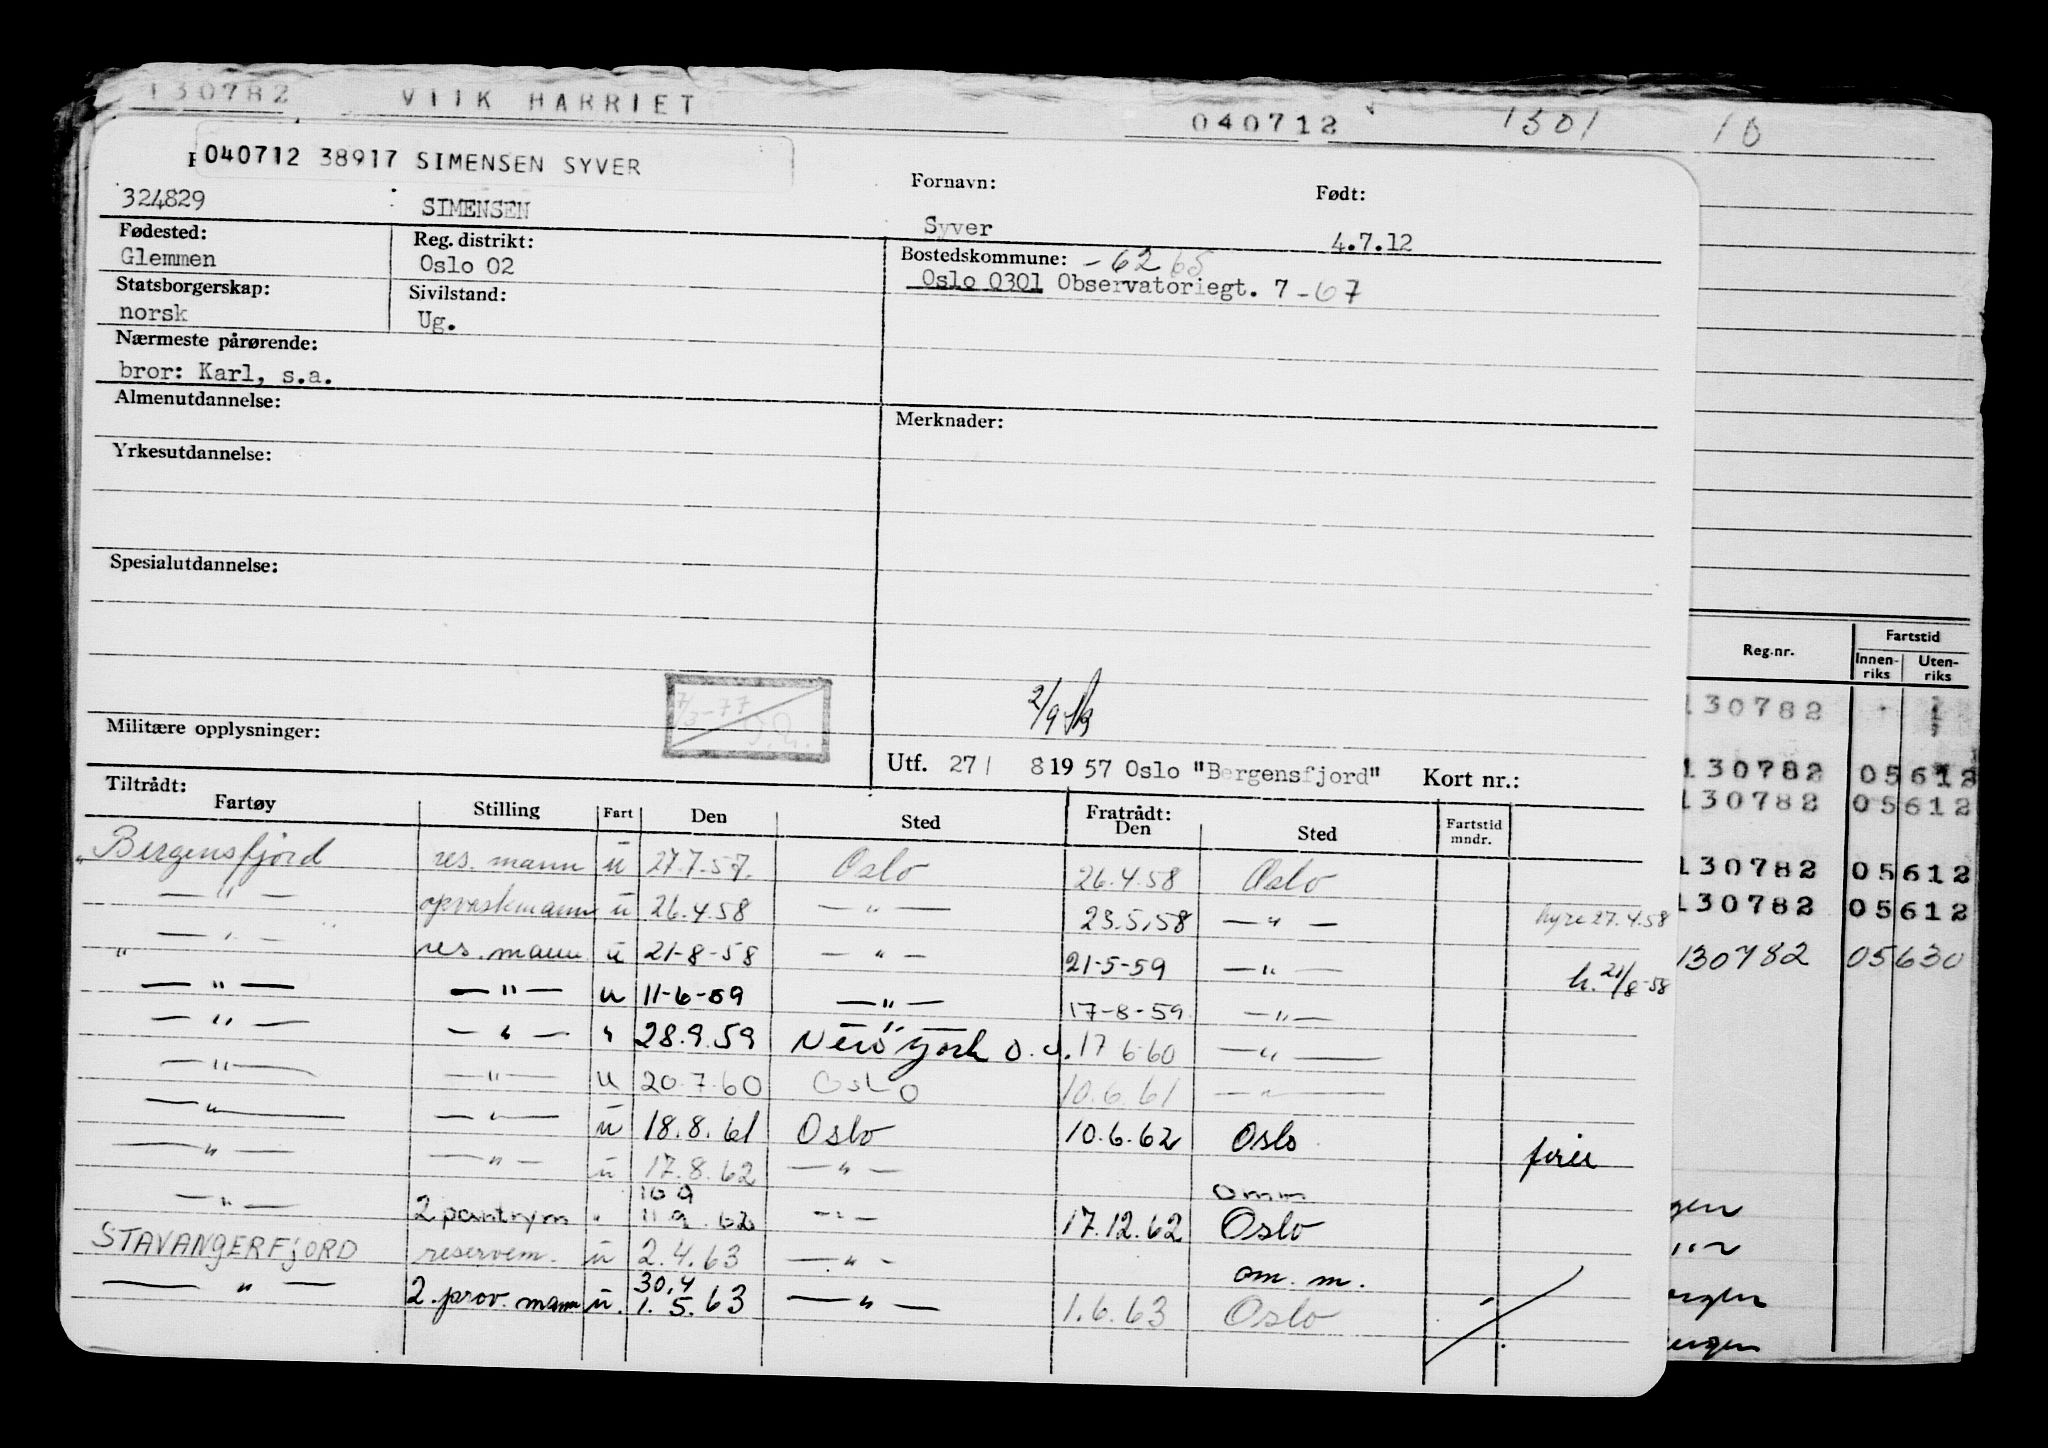 130782 VIIK HARRIET 040712 1301 10
040712 38917 SIMENSEN SYVER
Fornavn: Født:
324829 SIMENSEN Syver 4.7.12
Fødested: Reg. distrikt: Bostedskommune: -62 65
Glemmen Oslo 02 Oslo 0301 Observatoriegt. 7 -67
Statsborgerskap: Sivilstand:
norsk Ug.
Nærmeste pårørende:
bror: Karl, s.a.
Almenutdannelse: Merknader:
Yrkesutdannelse:
Spesialutdannelse:
7/3-77
2/9
Militære opplysninger:
Utf. 27/ 8 19 57 Oslo "Bergensfjord" Kort nr.:
Tiltrådt: Fratrådt:
Fartøy Stilling Fart Den Sted Den Sted Fartstid mndr.
Bergensfjord res. mann u 27.7.57. Oslo 26.4.58 Oslo
— " — opvaskmann u 26.4.58 — " — 23.5.58 — " — hyre 27.4.58
— " — res. mann u 21-8-58 — " — 21-5-59 — " — h. 21/8-58
— " — — " — u 11-6-59 — " — 17-8-59 — " —
— " — — " — " 28.9.59 New York 17 6 60 — " —
— " — — " — u 20.7.60 Oslo 10.6.61 — " —
— " — — " — u 18.8.61 Oslo 10.6.62 Oslo
— " — — " — u 17.8.62 — " — omm
10 9
— " — 2 pantrym " 11.9.62 — " — 17.12.62 Oslo
STAVANGERFJORD reservem. u 2.4.63 — " — om. m.
30.4
— " — 2. prov. mann u. 1.5.63 — " — 1.6.63 Oslo
Reg.nr. Fartstid
Innen-riks Uten-riks
130782
130782 05612
130782 05612
130782 05612
130782 05612
130782 05630